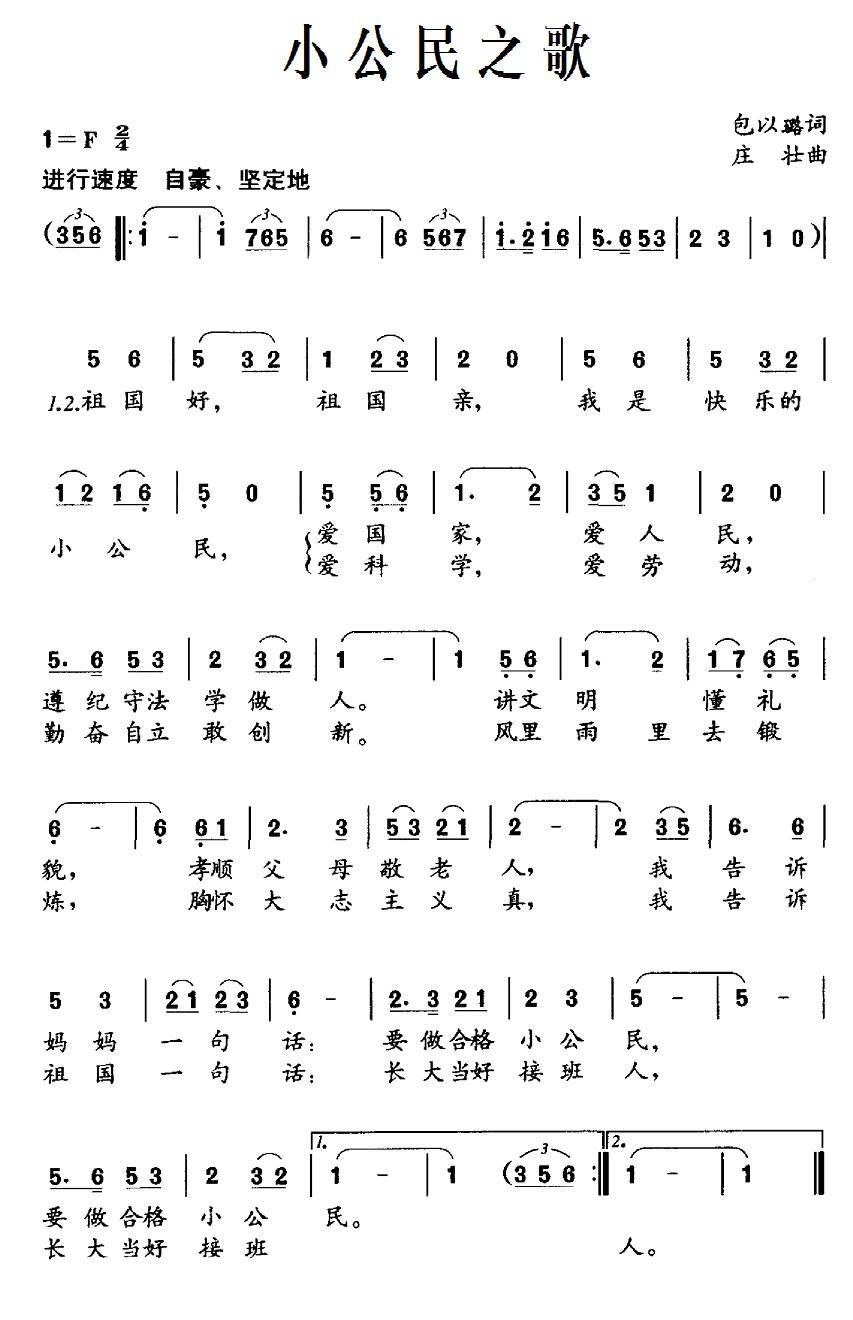 小公民之歌
1=F 2/4
包以璐词
庄 壮曲
进行速度 自豪、坚定地
(356 ‖: i - | i 765 | 6 - | 6 567 | i. 2 i 6 | 5. 6 5 3 | 2 3 | 1 0 )|
5 6 | 5 3 2 | 1 2 3 | 2 0 | 5 6 | 5 3 2 |
1.2.祖 国 好, 祖 国 亲, 我 是 快 乐的
1 2 1 6 | 5 0 | 5 5 6 | 1. 2 | 3 5 1 | 2 0 |
小 公 民, 爱 国 家, 爱 人 民,
爱 科 学, 爱 劳 动,
5. 6 5 3 | 2 3 2 | 1 - | 1 5 6 | 1. 2 | 1 7 6 5 |
遵 纪 守法 学 做 人。 讲文 明 懂 礼
勤 奋 自立 敢 创 新。 风里 雨 里 去 锻
6 - | 6 6 1 | 2. 3 | 5 3 2 1 | 2 - | 2 3 5 | 6. 6 |
貌, 孝顺 父 母 敬 老 人, 我 告 诉
炼, 胸怀 大 志 主 义 真, 我 告 诉
5 3 | 2 1 2 3 | 6 - | 2. 3 2 1 | 2 3 | 5 - | 5 - |
妈 妈 一 句 话: 要 做合格 小 公 民,
祖 国 一 句 话: 长 大当好 接 班 人,
1. 2.
5. 6 5 3 | 2 3 2 | 1 - | 1 (3 5 6 :‖ 1 - | 1 ‖
要 做 合格 小 公 民。
长 大 当好 接 班 人。